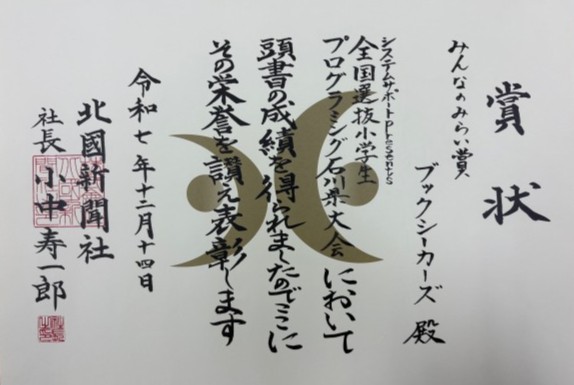 賞状
みんなのみらい賞
ブックシーカーズ 殿
システムサポートpresents
全国選抜小学生
プログラミング石川県大会において
頭書の成績を得られましたのでここに
その栄誉を讃え表彰します
令和七年十二月十四日
北國新聞社
社長 小中寿一郎